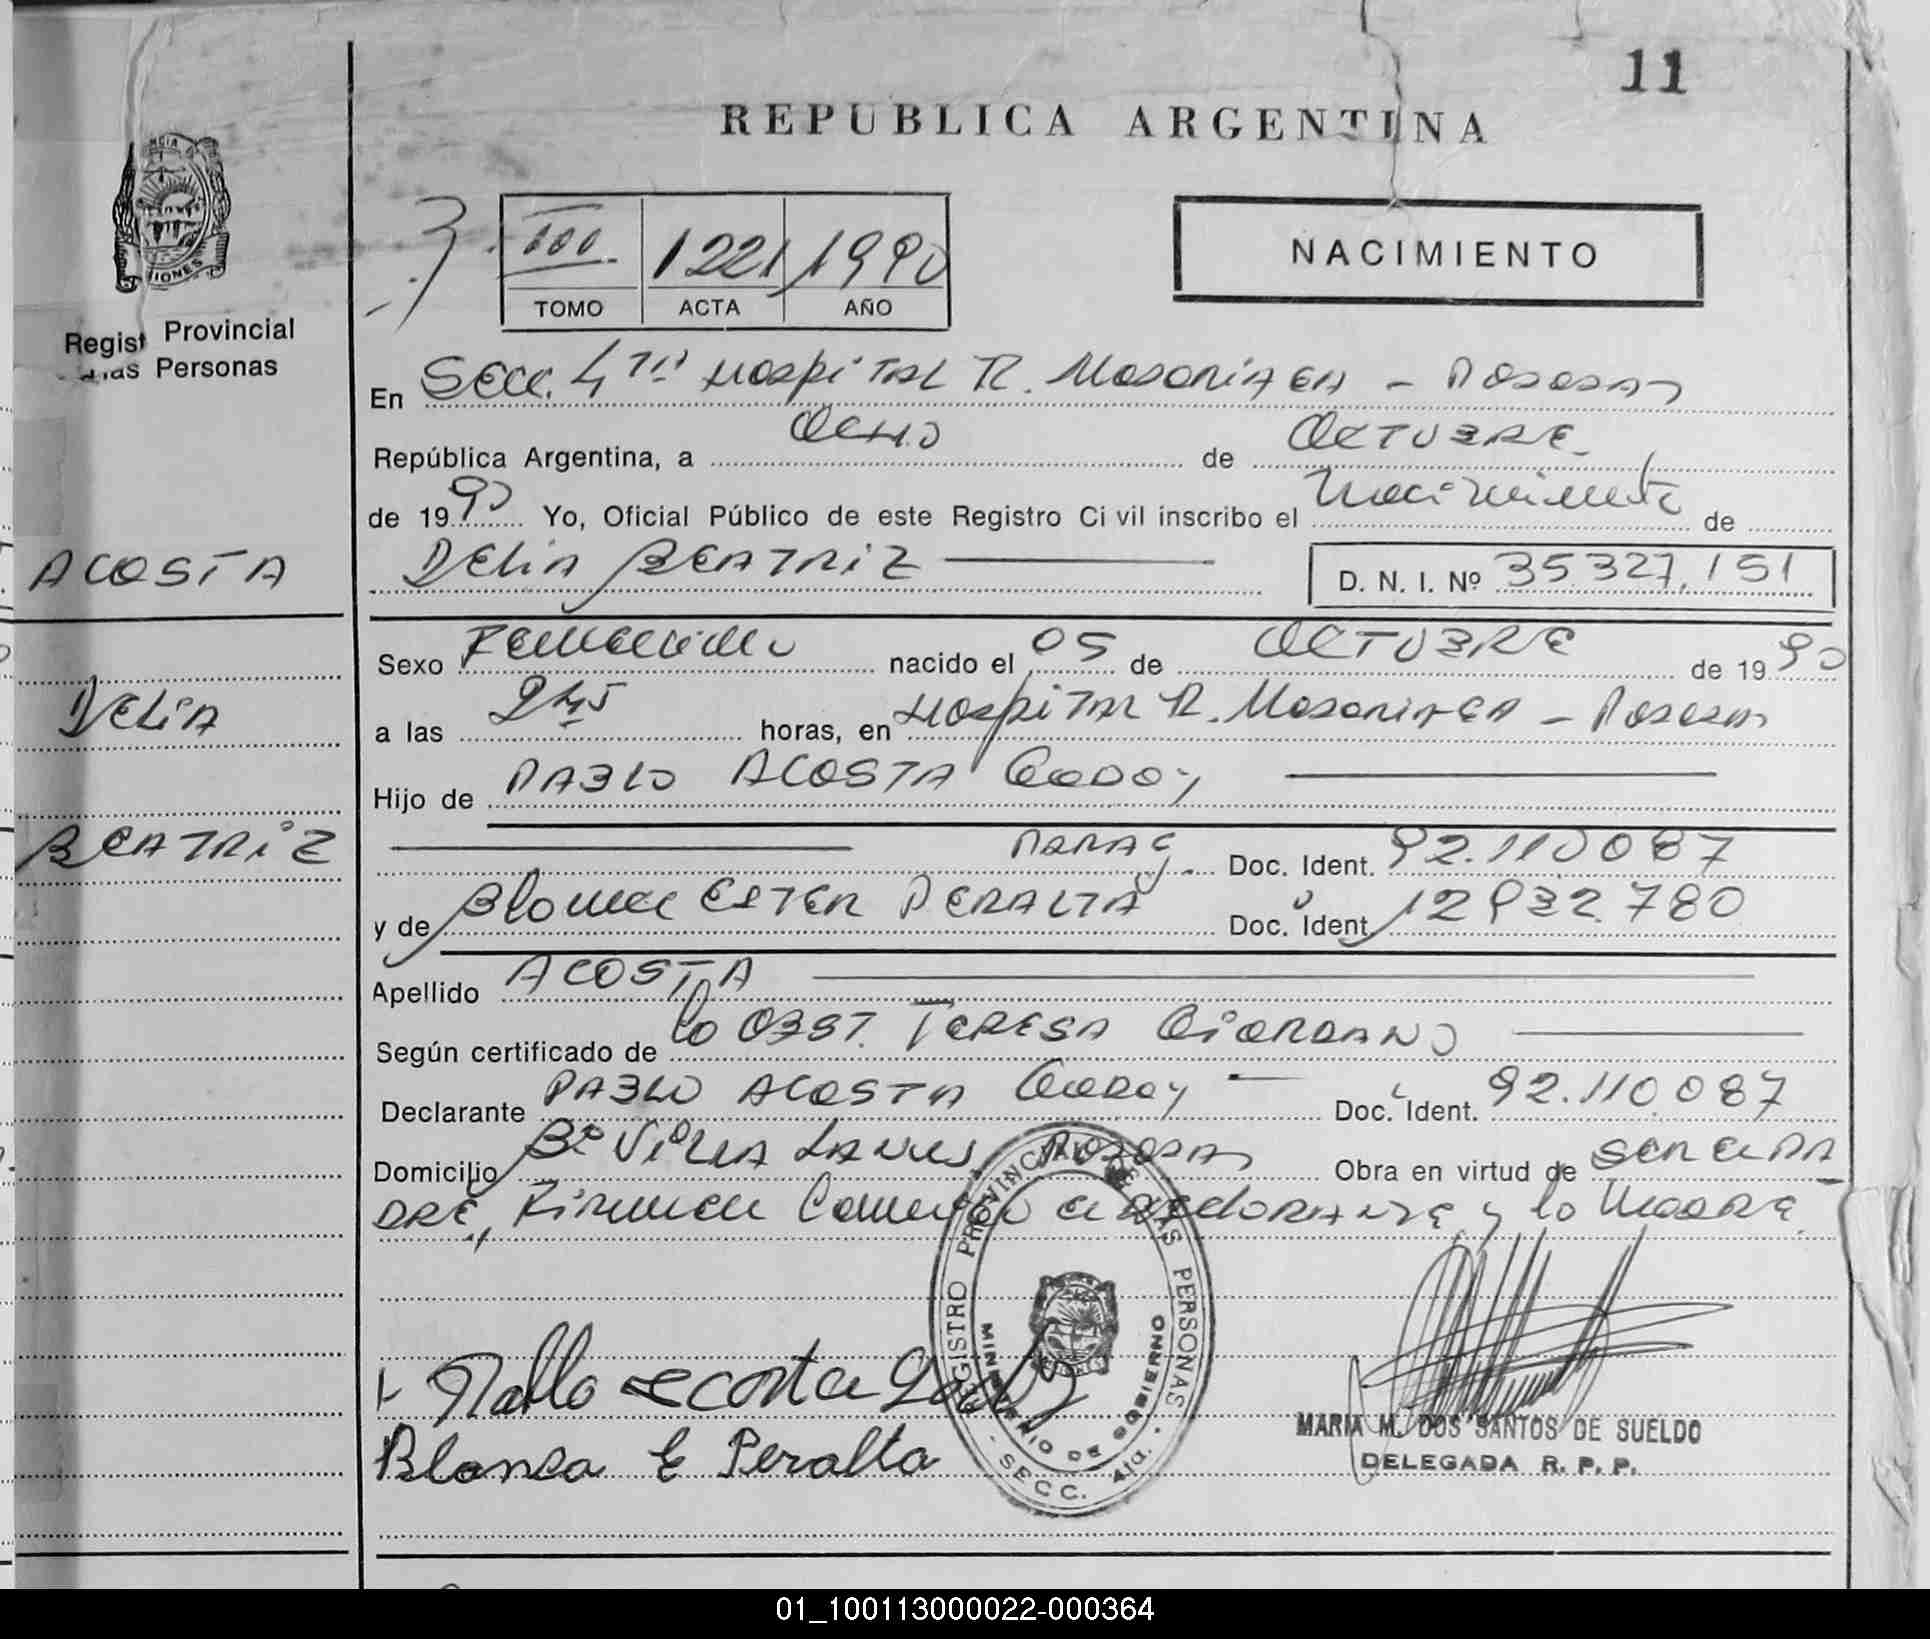 11
REPUBLICA ARGENTINA
III 1221 1990
TOMO ACTA AÑO
NACIMIENTO
Regist Provincial
las Personas
En SECC. 4TA HOSPITAL R. MADARIAGA - POSADAS
República Argentina, a OCHO de OCTUBRE
de 1990 Yo, Oficial Público de este Registro Civil inscribo el Nacimiento de
ACOSTA
DELIA BEATRIZ
D. N. I. Nº 35.327.151
Sexo Femenino nacido el 05 de OCTUBRE de 1990
DELIA
a las 9 hs horas, en HOSPITAL R. MADARIAGA - POSADAS
Hijo de PABLO ACOSTA GODOY
BEATRIZ
PARAG. Doc. Ident. 92.110.087
y de Blanca ESTER PERALTA Doc. Ident. 12.932.780
Apellido ACOSTA
Según certificado de la OBST. TERESA GIORDANO
Declarante PABLO ACOSTA GODOY Doc. Ident. 92.110.087
Domicilio Bº VILLA LANUS POSADAS Obra en virtud de SER EL PA
DRE, Firman el DECLARANTE y la MADRE.
REGISTRO PROVINCIAL DE LAS PERSONAS
MINISTERIO DE GOBIERNO
- SECC. 4ta. -
Pablo acosta Godoy
Blanca E Peralta
MARIA M. DOS SANTOS DE SUELDO
DELEGADA R. P. P.
01_100113000022-000364